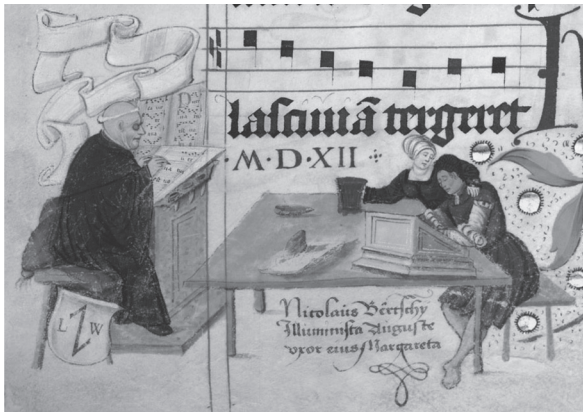 lascuiā tergeret
·M·D·XII·
D
L W
Nicolaus Bertschy
Illuminista Auguste
vxor eius Margareta